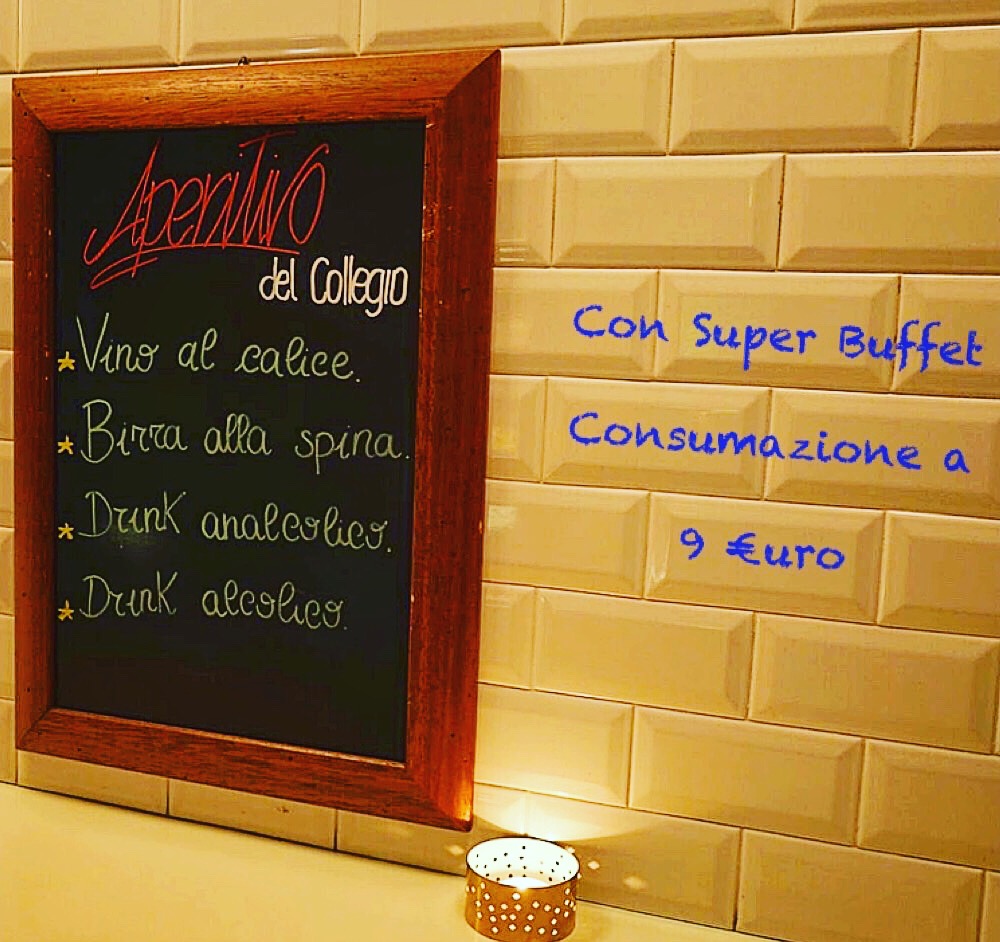 Aperitivo
del Collegio
* Vino al calice.
* Birra alla spina.
* Drink analcolico.
* Drink alcolico.
Con Super Buffet
Consumazione a
9 €uro